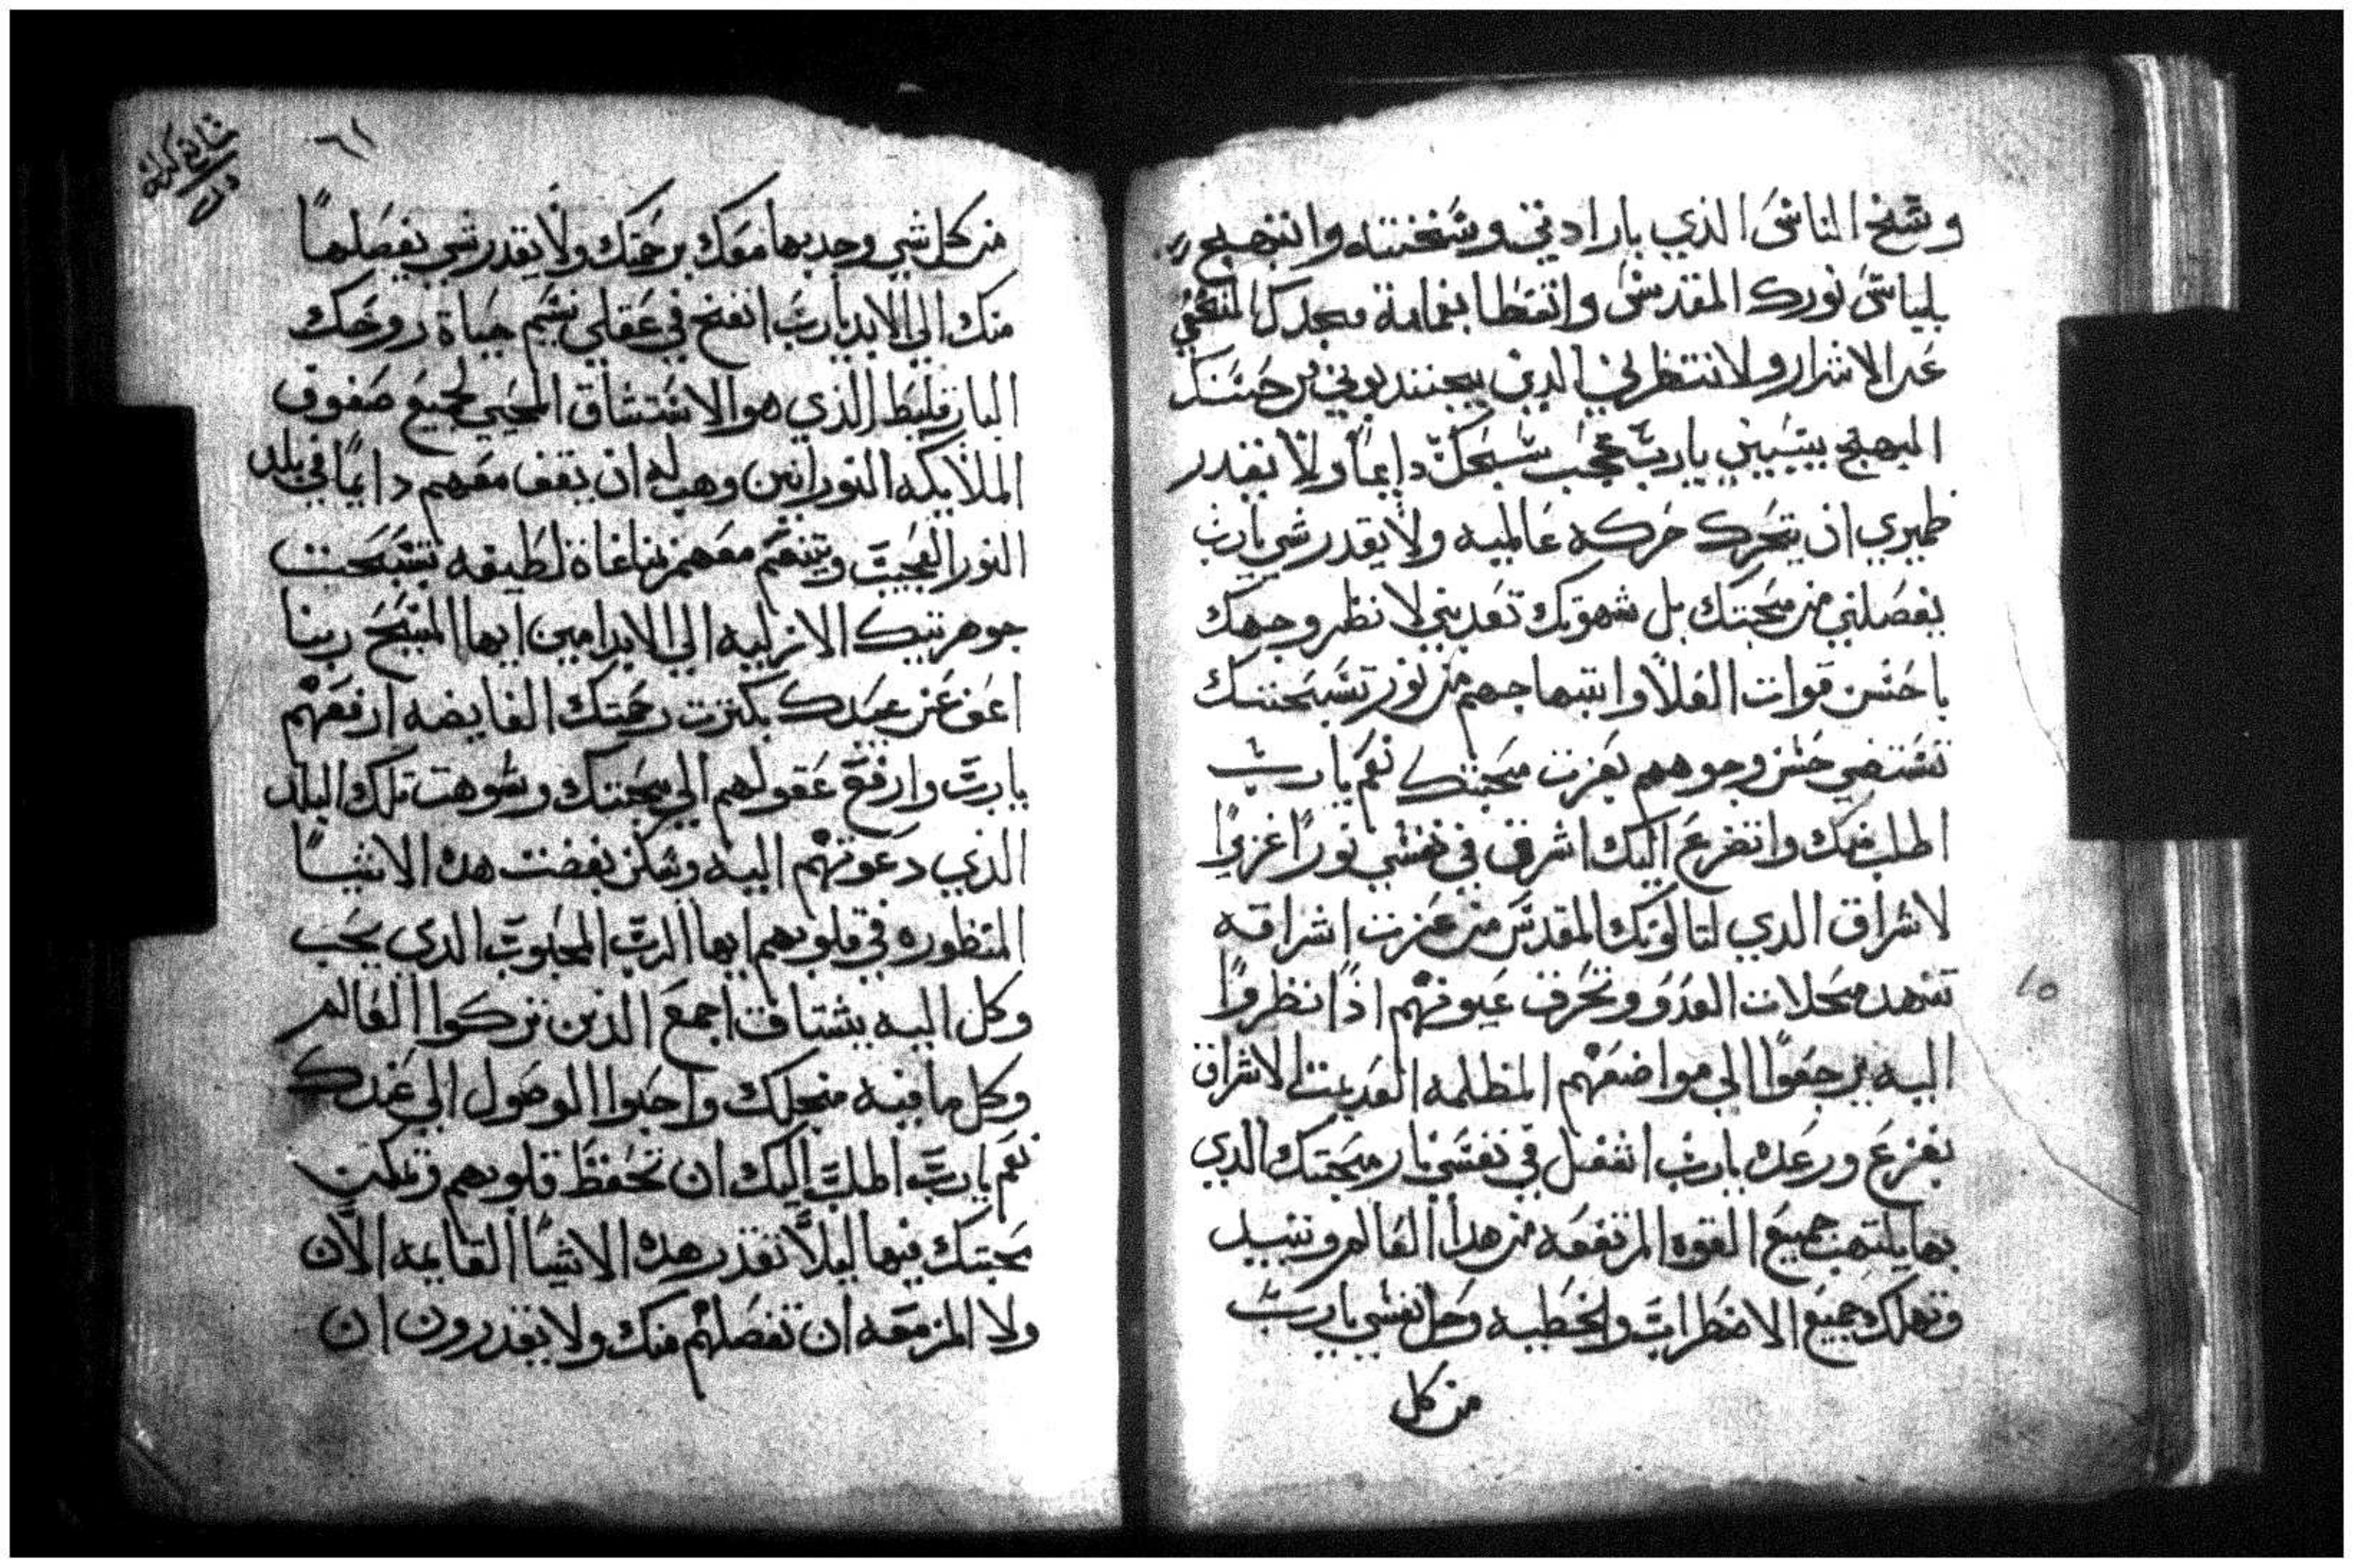 وسَخ الناسَ الذي بارادتي وسَخته وانبهج
بلباسَ نورك المقدسَ واتغطا بغمامة مجدك المخفي
عن الاشرار ولا تنتظرني الذين يجتذبوني من حسَنك
المبهج بيتبيين يارب عجب سَبحك دايماً ولا يقدر
ضميري ان يتحرك حركه عالميه ولا يقدر شي يارب
يفصلني من محبتك بل شهوتك تعذبني لا نظر وجهك
باحسَن قوات العلا وابتهاجهم من نور تسَبحتك
تسَتضي حسَن وجوههم بعزت محبتك نعم يارب
اطلب منك واتضرع اليك اشرق في نفسَي نوراً غزيراً
لاشراق الذي لتالوتك المقدسَ من عزت اشراقه
تنهد محلات العدو وتحرق عيونهم اذا نظروا
اليه يرجعوا الي مواضعهم المظلمه العديمت الاشراق
بفزع ورعده يارب اشعل في نفسَي نار محبتك الذي
بها يلتهب جميع القوه المرتفعه من هدا العالم وتبيد
وتهلك جميع الاضطرابت والخطيه وحل نفسي يارب
من كل
٦١
من كل شي وجد بها معك برحمتك ولا يقدر شي يفصلها
منك الي الابد يارب انفخ في عقلي نسَيم حياة روحك
البارقليط الذي هو الاسَتنشاق المحيي لجميع صفوف
الملايكه النورانين وهب له ان يقف معهم دايماً في بلد
النور العجيب ويتنعم معهم بمناغاة لطيفه بتسَبحت
جوهريتك الازليه الي الابد امين ايها المسَيح ربنا
اعف عن عبيدك بكترت رحمتك الفايضه ارفعهم
يارب وارفع عقولهم الي محبتك وشوهت تلك البلد
الذي دعوتهم اليه وسَكن بغضت هذه الاشيا
المنظوره في قلوبهم ايها الرب المحبوب الذي يحب
وكل اليه يشتاق اجمع الذين تركوا العالم
وكل ما فيه منجلك واحبوا الوصول الي عندك
نعم يارب اطلب اليك ان تحفظ قلوبهم وتمكن
محبتك فيها ليلا تقدر هذه الاشيا القايمه الان
ولا المزمعه ان تفصلهم منك ولا يقدرون ان